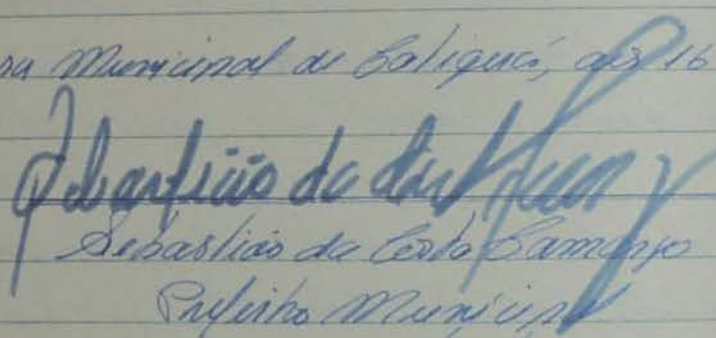 ra Municipal de Caliguá, aos 16
Sebastião da Costa Camargo
Sebastião da Costa Camargo
Prefeito Municipal